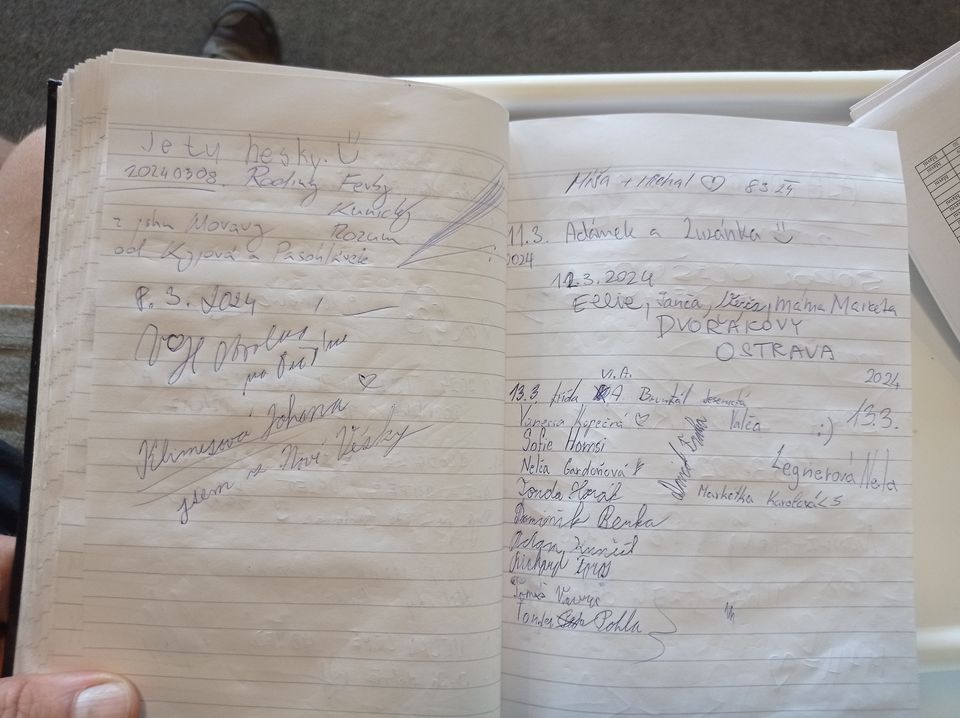 Je tu hesky.
20240308. Rodiny Ferby
Kunický
z jihu Moravy Rozum
od Kyjova a Pasohlávie
8. 3. 2024
Klimešová Johana
jsem z Nové Vésky
Míša + Michal 8 3 24
11.3. Adámek a Zuzánka
2024
12.3.2024
Ellie, Janča, máma Markéta
DVOŘÁKOVY
OSTRAVA
2024
VI.A.
13.3 A Bruntál Jesenická
Vanessa Kopečná Valča :) 13.3.
Sofie Homsi
Nelča Gardoňová Legnerová Nela
Tonda Horák Markétka Karafová <3
Dominik Benka
Adam
Richard
Tomáš
Tonda Pohla